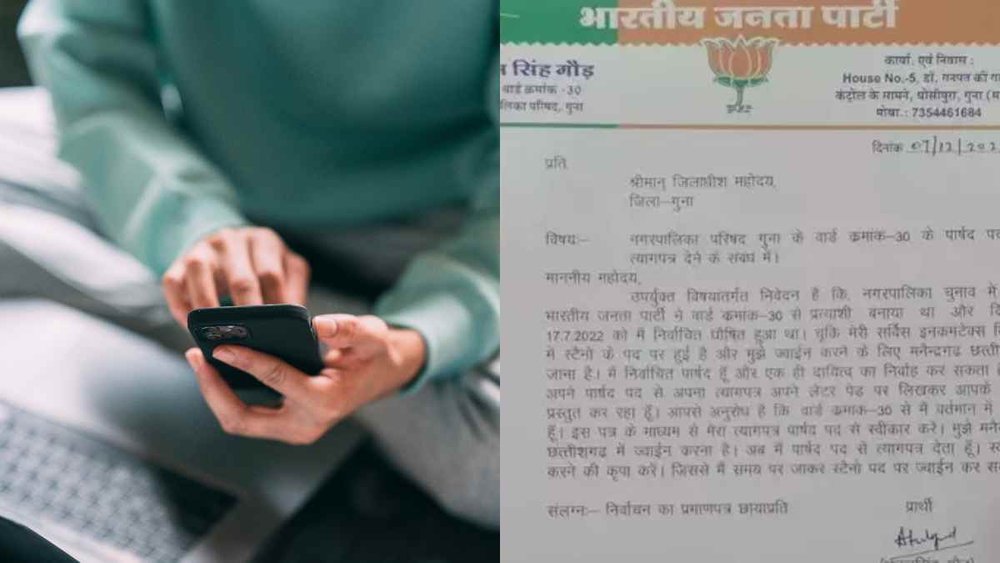 भारतीय जनता पार्टी
सिंह गौड़
वार्ड क्रमांक -30
परिषद, गुना
कार्या. एवं निवास :
House No.-5, डॉ. गनपत की
कंट्रोल के सामने, घोसीपुरा, गुना
मोबा. : 7354461684
दिनांक 07/12/202
प्रति,
श्रीमान् जिलाधीश महोदय,
जिला–गुना
विषयः– नगरपालिका परिषद गुना के वार्ड क्रमांक–30 के पार्षद पद
त्यागपत्र देने के संबंध में।
माननीय महोदय,
उपर्युक्त विषयातर्गत निवेदन है कि, नगरपालिका चुनाव में
भारतीय जनता पार्टी ने वार्ड क्रमांक–30 से प्रत्याशी बनाया था और
17.7.2022 को में निर्वाचित घोषित हुआ था। चूकि मेरी सर्विस इनकमटेक्स
में स्टेनो के पद पर हुई है और मुझे ज्वाईन करने के लिए मनेन्द्रगढ
जाना है। मैं निर्वाचित पार्षद हूँ और एक ही दायित्व का निर्वाह कर सकता
अपने पार्षद पद से अपना त्यागपत्र अपने लेटर पेड पर लिखकर आपके
प्रस्तुत कर रहा हूँ। आपसे अनुरोध है कि वार्ड क्रमाक–30 से मैं वर्तमान में
हूँ। इस पत्र के माध्यम से मेरा त्यागपत्र पार्षद पद से स्वीकार करे। मुझे
छत्तीशगढ में ज्वाईन करना है। अब में पार्षद पद से त्यागपत्र देता हूँ।
करने की कृपा करें। जिससे में समय पर जाकर स्टेनो पद पर ज्वाईन कर
संलग्नः– निर्वाचन का प्रमाणपत्र छायाप्रति
प्रार्थी